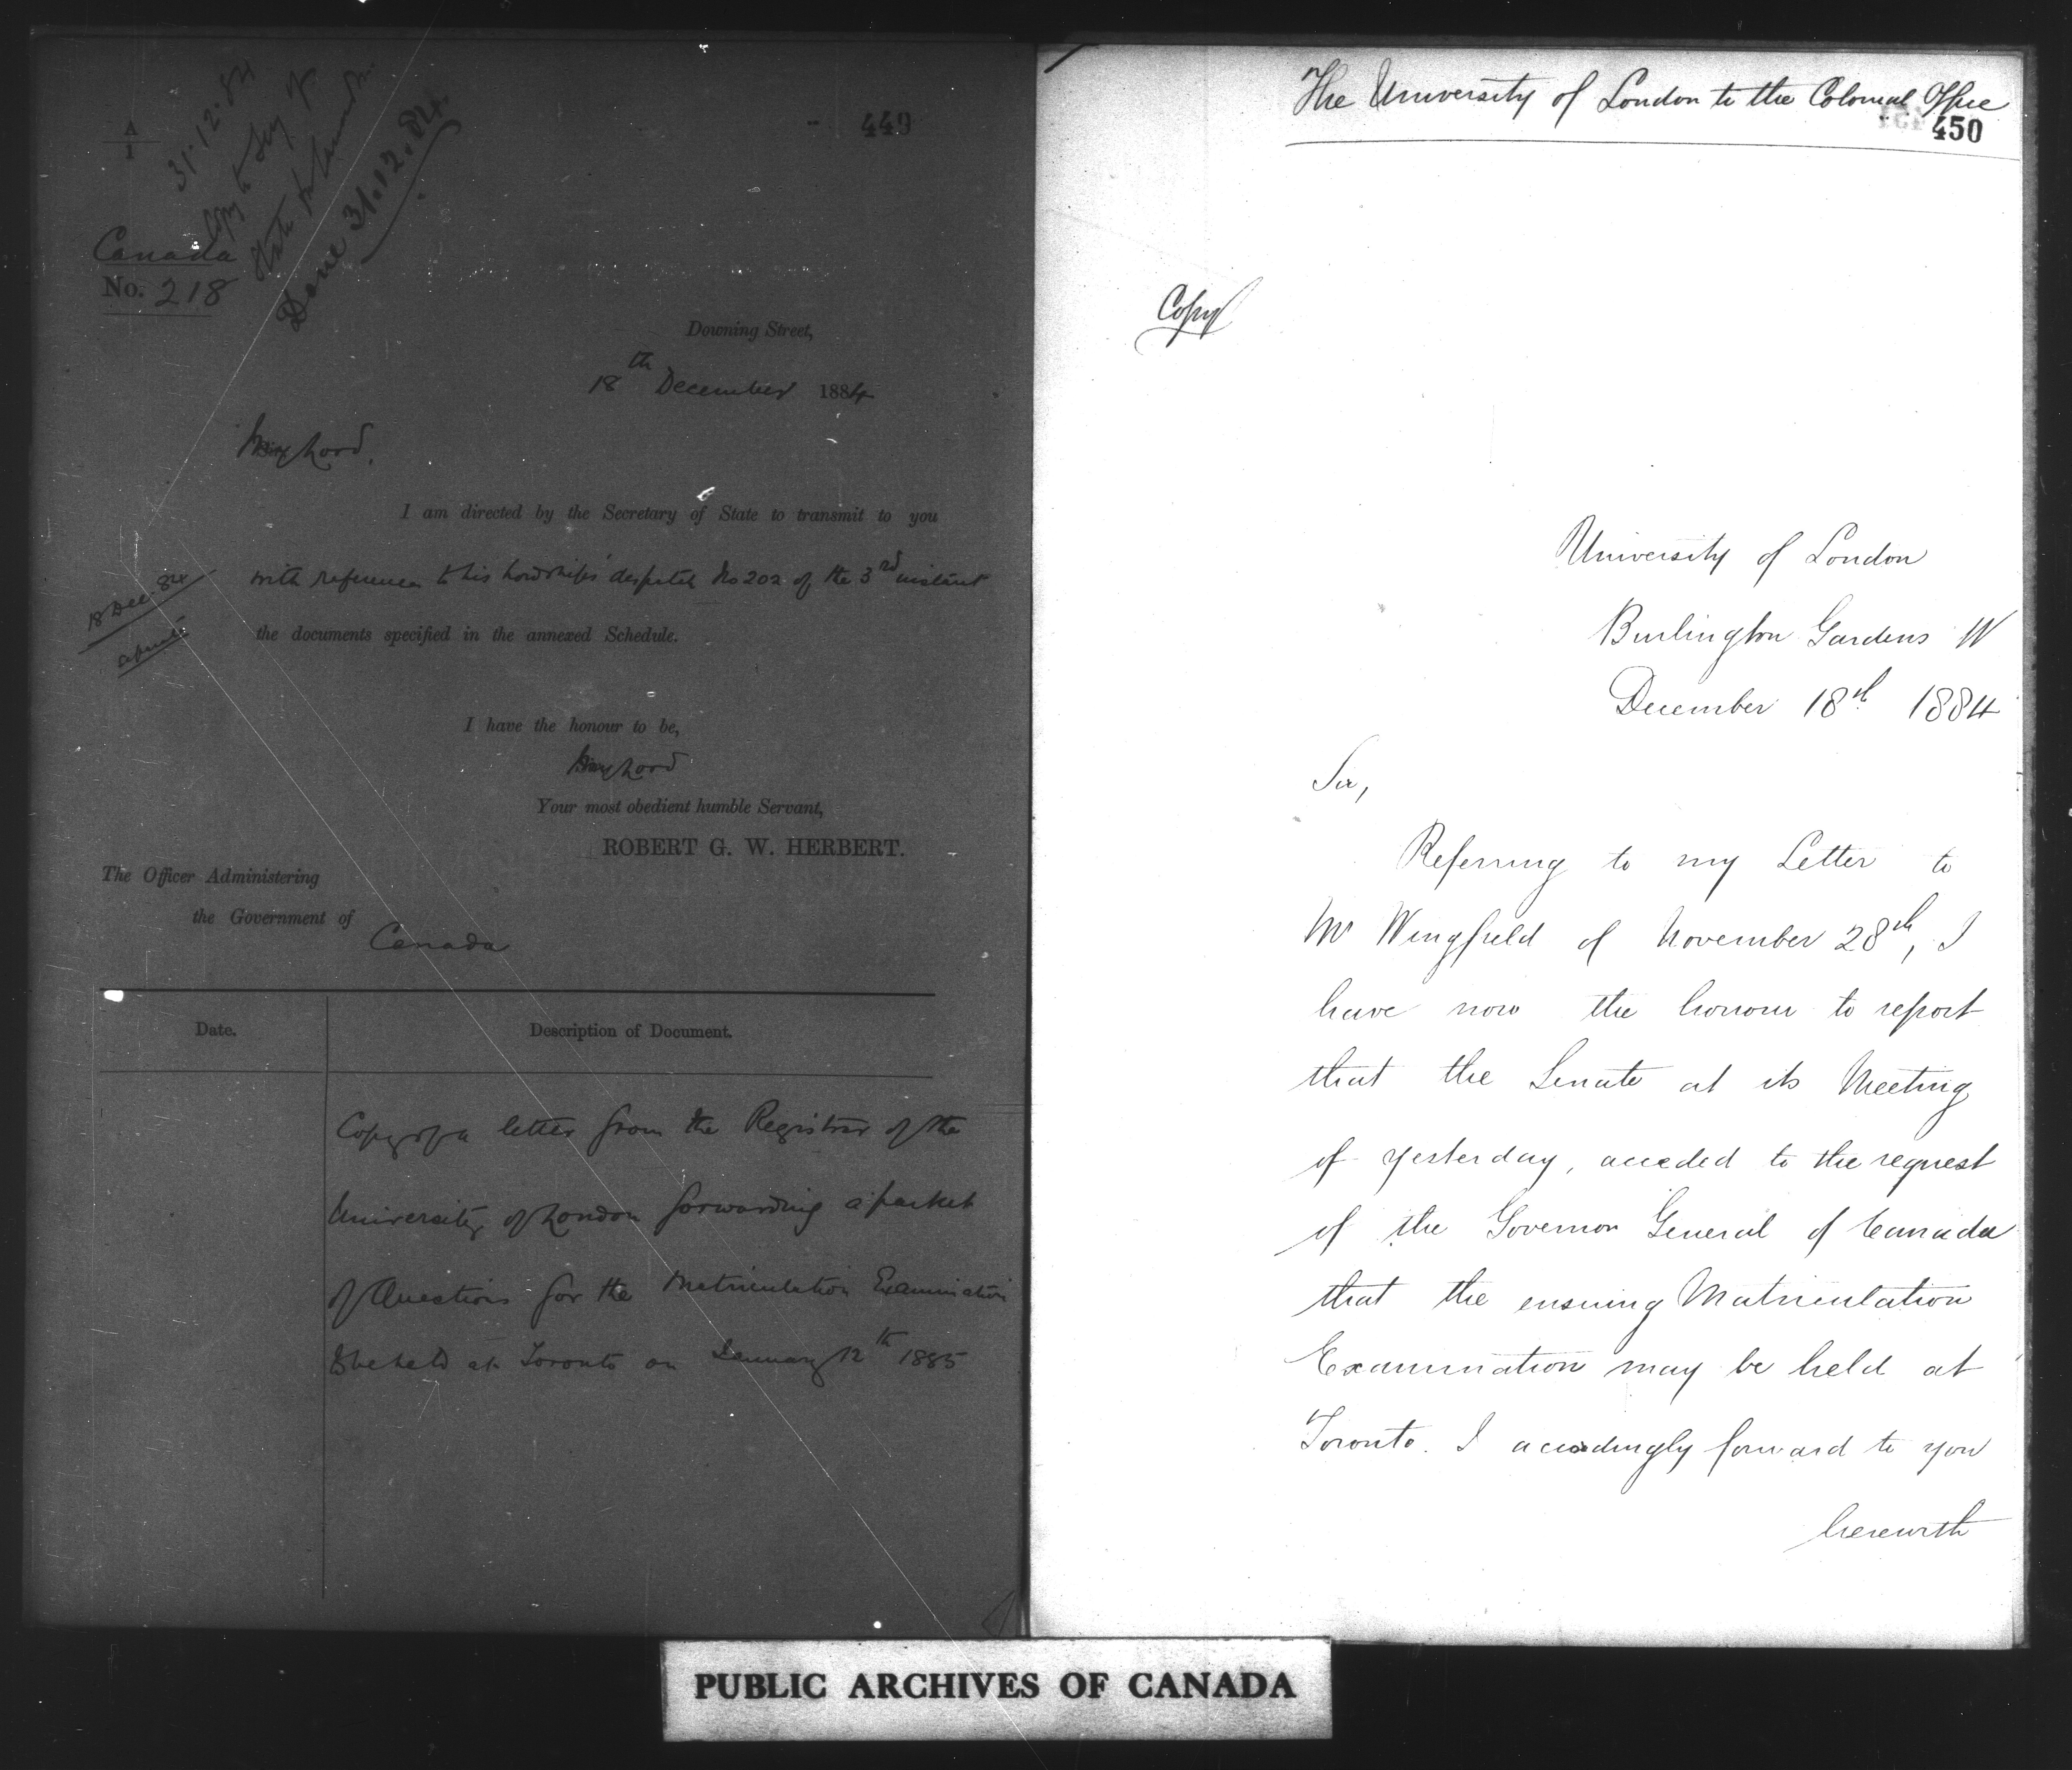 A
1
31.12.84
Copy to Secy of
State
Done 31.12.84.
449
Canada
No. 218
Downing Street,
18th December 1884
My Lord,
I am directed by the Secretary of State to transmit to you
with reference to his Lordships' despatch No 202 of the 3rd instant
18 Dec. 84
the documents specified in the annexed Schedule.
I have the honour to be,
My Lord
Your most obedient humble Servant,
ROBERT G. W. HERBERT.
The Officer Administering
the Government of
Canada
Date.
Description of Document.
Copy of a letter from the Registrar of the
University of London forwarding a packet
of Questions for the Matriculation Examination
to be held at Toronto on January 12th 1885
The University of London to the Colonial Office
450
Copy
University of London
Burlington Gardens W
December 18th 1884
Sir,
Referring to my Letter to
Mr Wingfield of November 28th, I
have now the honour to report
that the Senate at its Meeting
of yesterday, acceded to the request
of the Governor General of Canada
that the ensuing Matriculation
Examination may be held at
Toronto. I accordingly forward to you
herewith
PUBLIC ARCHIVES OF CANADA